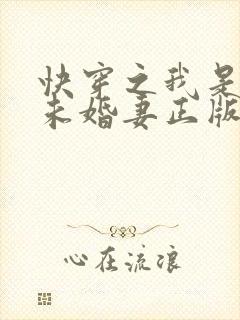 快穿之我是
未婚妻正版
心在流浪